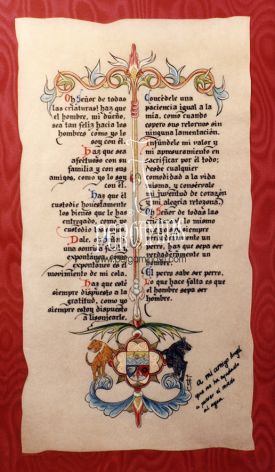 Oh Señor de todas
las criaturas! haz que
el hombre, mi dueño,
sea tan feliz hacia los
hombres como yo le
soy con él.
Haz que sea
afectuoso con su
familia y con sus
amigos, como yo le soy
con él.
Haz que él
custodie honestamente
los bienes que le has
entregado, como yo
custodio
Dale,
una sonrisa
espontánea, como
espontáneo es el
movimiento de mi cola.
Haz que esté
siempre dispuesto a la
gratitud, como yo
siempre estoy dispuesto
a lisonjearle.
Concédele una
paciencia igual a la
mía, como cuando
espero sus retornos sin
ninguna lamentación.
Infúndele mi valor y
mi apresuramiento en
sacrificar por él todo;
desde cualquier
comodidad a la vida
misma, y consérvale
mi juventud de corazón
y mi alegría
Oh Señor de todas las
criaturas, lo mismo
que yo soy siempre
verdaderamente un
perro, haz que sepa ser
verdaderamente un
hombre.
El perro sabe ser perro,
Lo que hace falta es que
el hombre sepa ser
hombre.
A mi amigo
que me ha